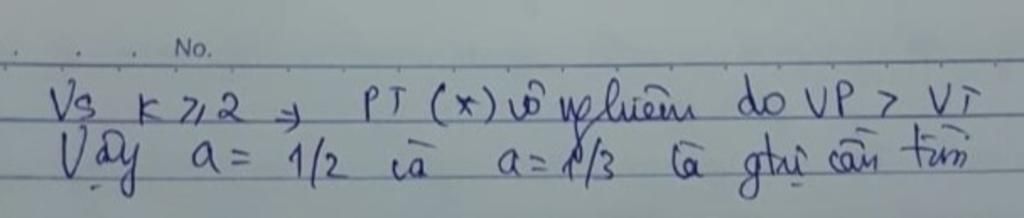 No.
Vs K ≥ 2 → PT (*) vô nghiệm do VP > VT
Vậy a = 1/2 và a = 1/3 là gtrị cần tìm